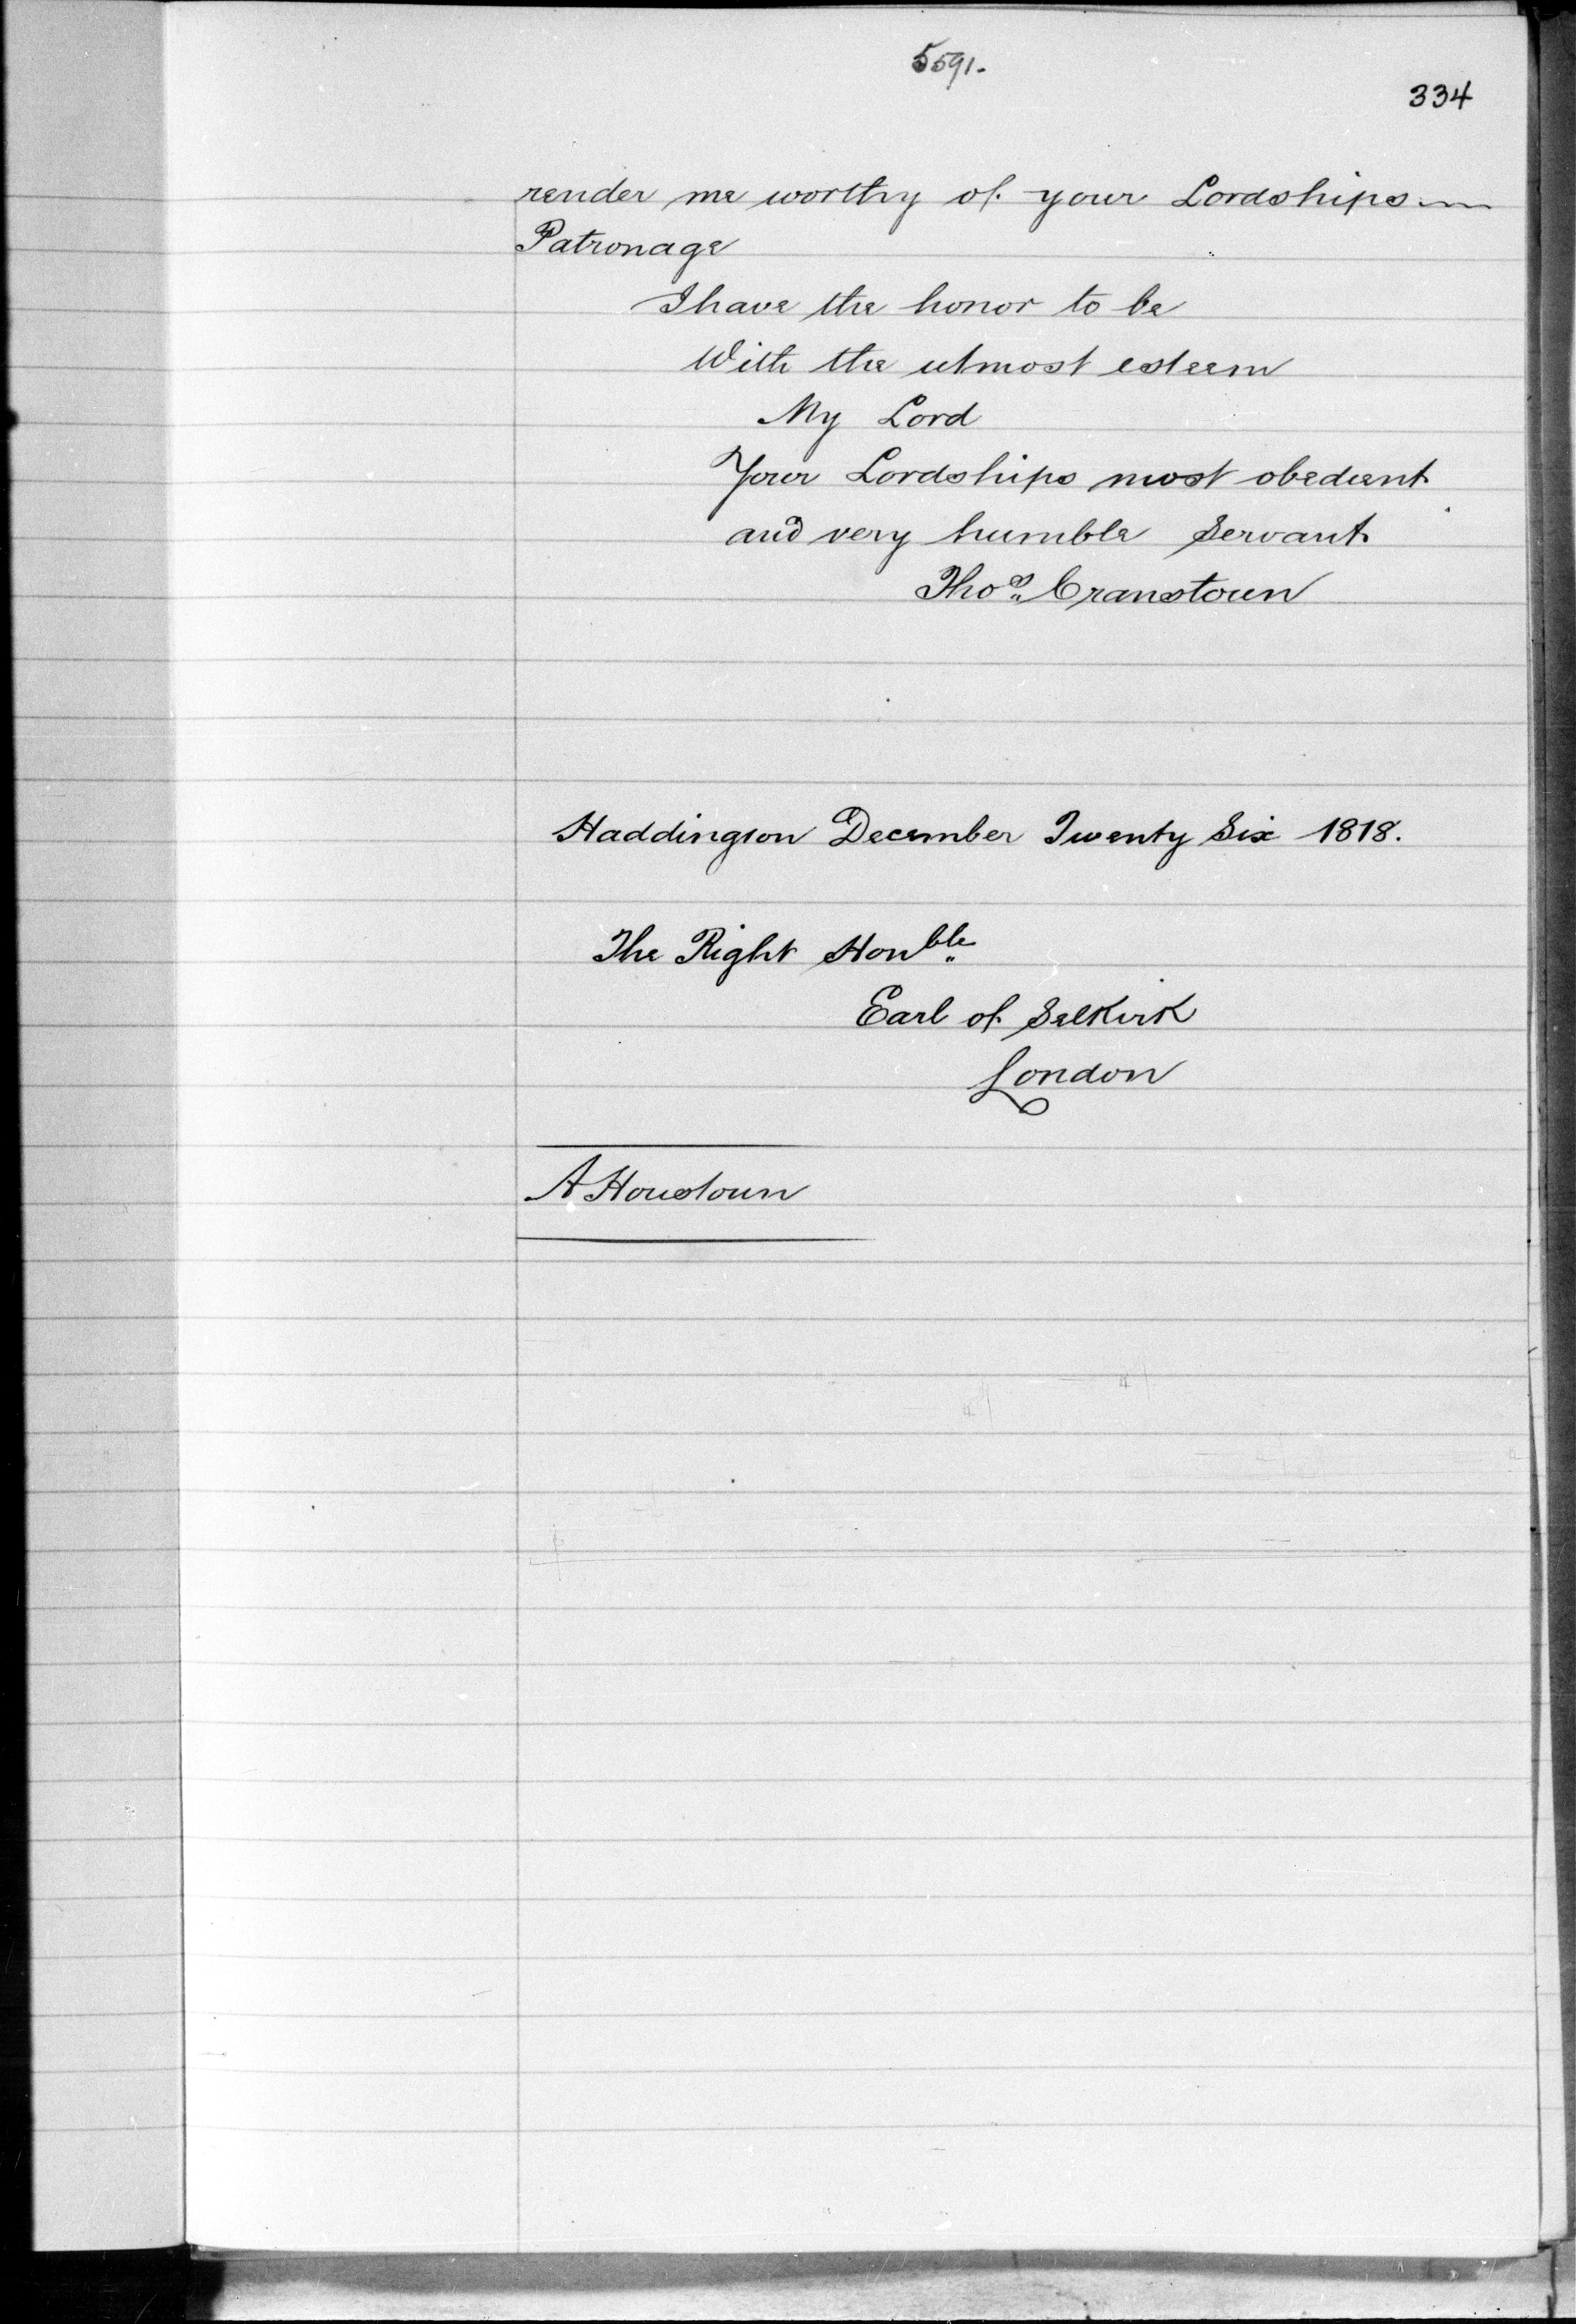 5591.
334
render me worthy of your Lordships
Patronage
I have the honor to be
With the utmost esteem
My Lord
Your Lordships most obedient
and very humble Servant
Thos. Cranstoun
Haddington December Twenty Six 1818.
The Right Honble
Earl of Selkirk
London
A Houstoun